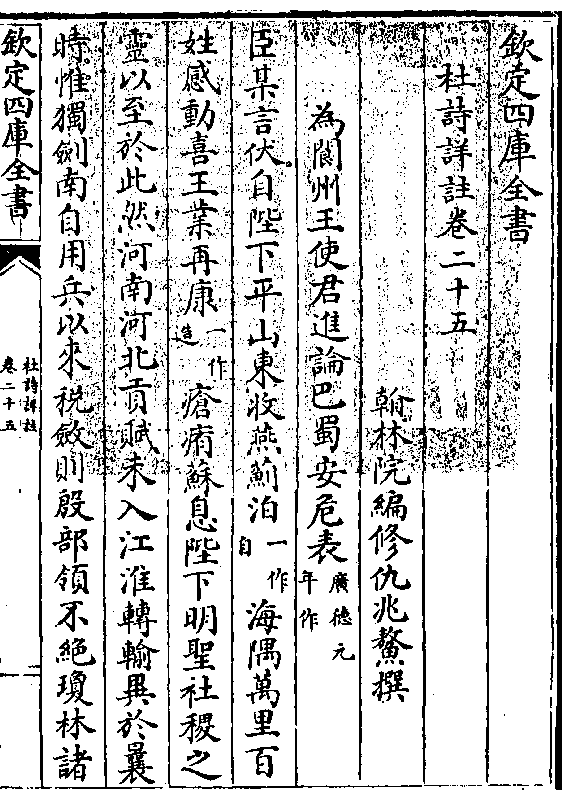 欽定四庫全書
杜詩詳註卷二十五
翰林院編修仇兆鰲撰
為閬州王使君進論巴蜀安危表廣德元年作
臣某言伏自陛下平山東收燕薊洎一作自海隅萬里百
姓感動喜王業再康一作造瘡痏蘇息陛下明聖社稷之
靈以至於此然河南河北貢賦未入江淮轉輸異於曩
時惟獨劍南自用兵以來税斂則殷部領不絕瓊林諸
欽定四庫全書
杜詩詳註
卷二十五